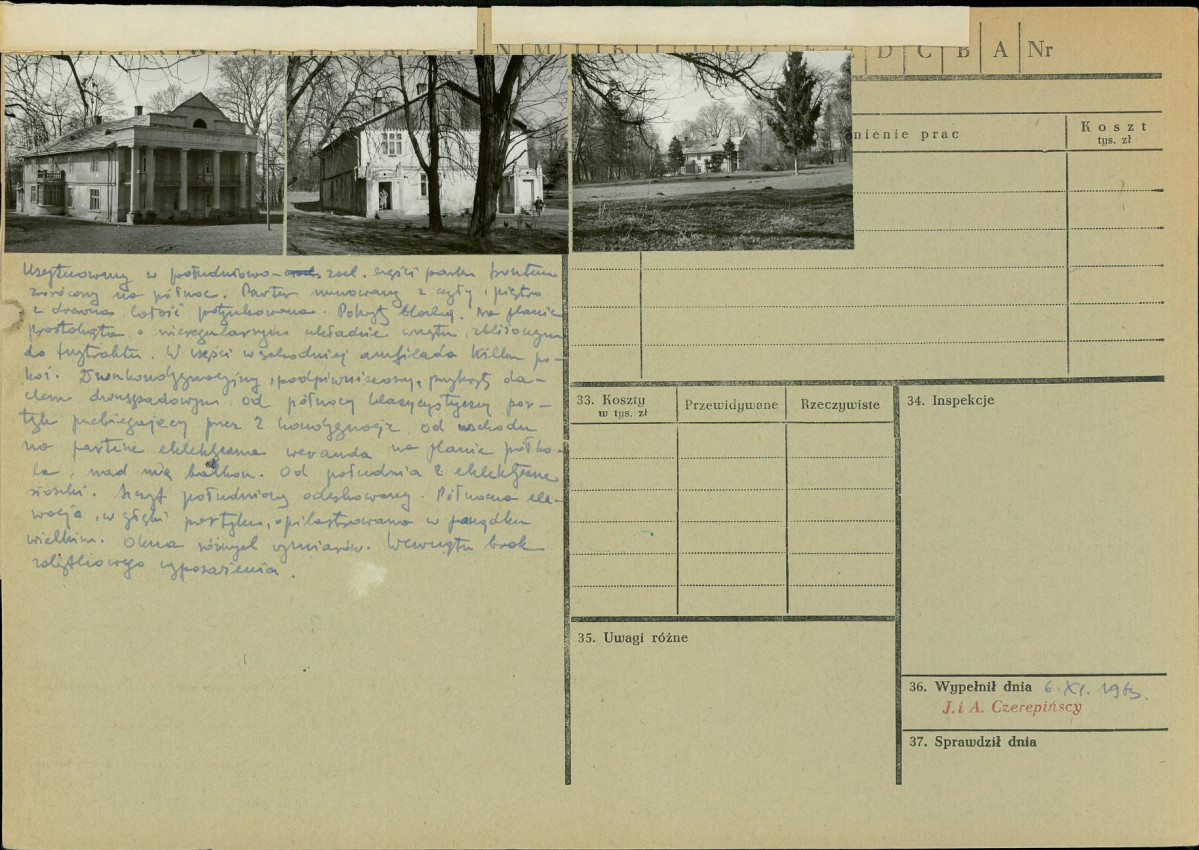 D C B A Nr
nienie prac
Koszt
tys. zł
Usytuowany w południowo-zach. części parku frontem
zwrócony na północ. Parter murowany z cegły, piętro
z drewna. Całość potynkowana. Pokryty blachą. Na planie
prostokąta o nieregularnym układzie wnętrz, zbliżonym
do trzytraktu. W części wschodniej amfilada kilku po-
koi. Dwukondygnacyjny, podpiwniczony, przykryty da-
chem dwuspadowym. Od północy klasycystyczny por-
tyk przebiegający przez 2 kondygnacje. Od wschodu
na parterze eklektyczna weranda na planie półko-
la, nad nią balkon. Od południa 2 eklektyczne
sionki. Szczyt południowy odeskowany. Północna ele-
wacja, w głębi portyku, opilastrowana w porządku
wielkim. Okna różnych wymiarów. Wewnątrz brak
zabytkowego wyposażenia.
33. Koszty
w tys. zł
Przewidywane
Rzeczywiste
34. Inspekcje
35. Uwagi różne
36. Wypełnił dnia 6. XI. 1963.
J. i A. Czerepińscy
37. Sprawdził dnia